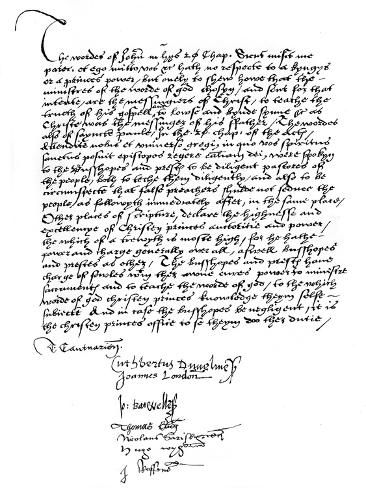 The wordes of John in hys 20 Chap. Sicut misit me
pater, et ego mitto vos &c hath no respecte to a kynges
or a princes power, but onely to shew howe that the
ministres of the worde of god chosyn and sent for that
intente, are the messengiers of Christ, to teache the
truth of his gospell, to lowse and bynde synne &c as
Christe was the messenger of his father. The wordes
also of saynte paule, in the 20 chap. of the Acts
Attendite vobis et universo gregi, in quo vos spiritus
sanctus posuit episcopos regere ecclesiam dei, were spokyn
to the Busshopes and prests, to be diligent pastores of
the people, both to teche them diligently, and also to be
circumspecte that false preachers shulde not seduce the
people, as followyth immediately after, in the same place/
Other places of scripture, declare the highnesse and
excellencye of Christen princes autoritie and power/
the which of a trewth is most high, for he hathe
power and charge generally over all, aswell busshopes
and prestes as other. The busshopes and prests have
charge of sowles within their owne cures, power to ministre
sacraments, and to teache the worde of god, to the which
worde of god christen princes knowledge theym self
subiect & and in case the busshopes be negligent, it is
the christen princes office to se theym doo their dutie/
T. Cantuarien
Cuthbertus Dunelmens
Joannes London
Jo: batwelles
Thomas Elien
Nicolaus Sarisburien
hugo wygorn
J Roffens